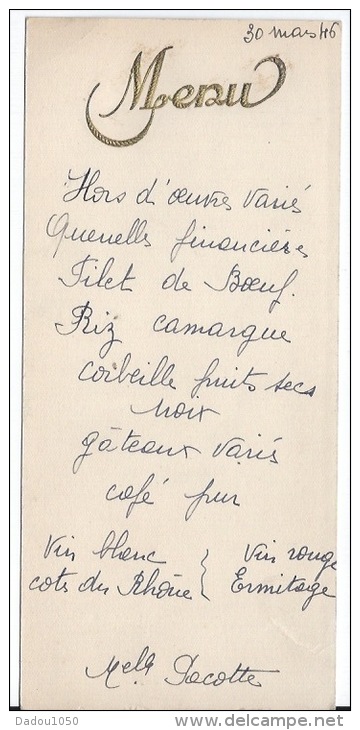 30 mars 46
Menu
Hors d'œuvres variés
Quenelles financières
Filet de Bœuf.
Riz camargue
corbeille fruits secs
noix
gâteaux variés
café pur
Vin blanc } Vin rouge
cote du Rhône { Ermitage
Melle Pacotte
Dadou1050
www.delcampe.net